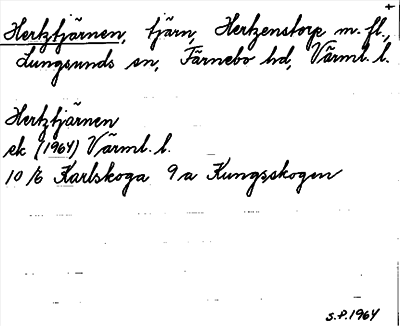 Hertztjärnen, tjärn, Hertzenstorp m.fl.,
Lungsunds sn, Färnebo hd, Värml. l.
Hertztjärnen
ek (1964) Värml. l.
10/6 Karlskoga 9a Kungsskogen
S.P. 1964